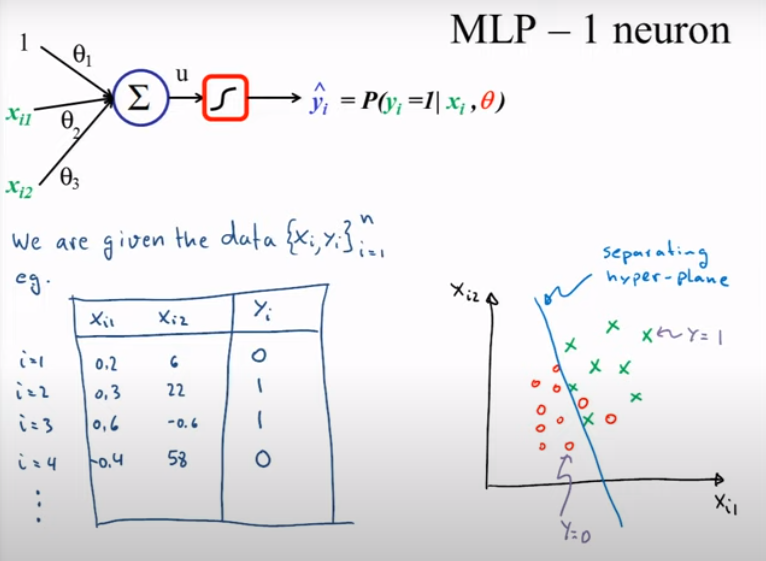 MLP – 1 neuron
1
θ1
u
Σ
ŷi = P(yi =1| xi ,θ)
xi1
θ2
θ3
xi2
We are given the data {xi,yi}ⁿi=1
eg.
xi1 xi2 Yi
i=1 0,2 6 0
i=2 0,3 22 1
i=3 0,6 -0.6 1
i=4 -0.4 58 0
⋮
separating
hyper-plane
xi2
Y=1
xi1
Y=0